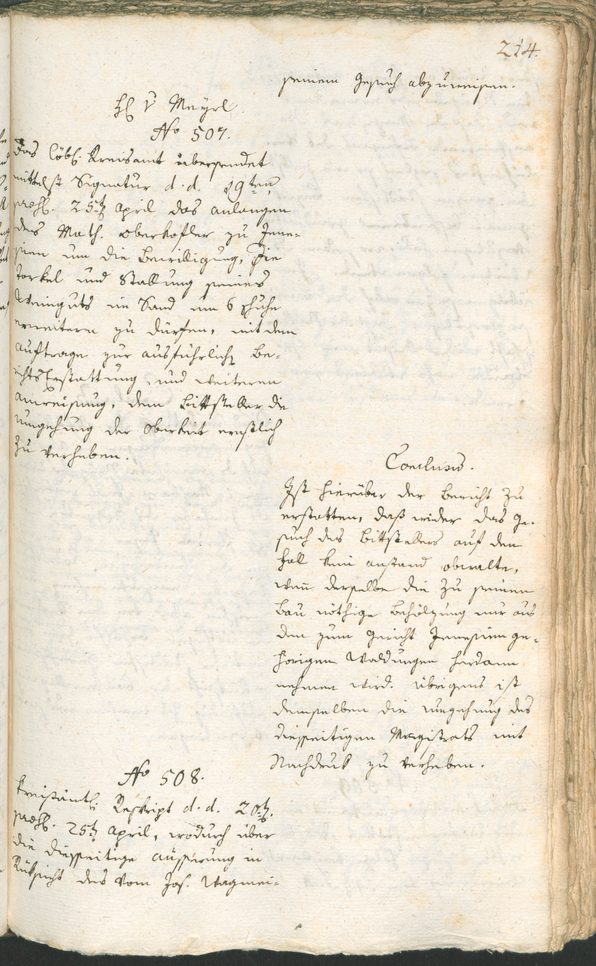 214.
seinem Gesuch abzuweisen.
H v Mayrl
No 507.
Das Löbl. Kreisamt übersendet
mittelst Signatur d. d. 19ten
praes. 25t April das anlangen
des Math. Oberkofler zu Jene-
sien um die Bewilligung, die
Torkel und Stallung seines
Weinguts im Sand um 6 Schuhe
erweitern zu dürfen, mit dem
Auftrage zur ausführlich Be-
richtserstattung, und weiteren
Anweisung, dem Bittsteller die
Umgehung der Obrkeit ernstlich
zu verheben.
Conclusum.
Ist hierüber der Bericht zu
erstatten, daß wider das Ge-
such des Bittstellers auf den
Fall kein anstand obwalte,
wenn derselbe die zu seinem
Bau nöthige Behölzung nur aus
den zum Gericht Jenesien ge-
hörigen Waldungen hordann
nehmen wird. Übrigens ist
demselben die Umgehung des
diesseitigen Magistrats mit
Nachdruk zu verheben.
No 508.
Kreisämtl. Reskript d. d. 20t.
praes. 25t April, wodurch über
die diesseitige äusserung in
Rüksicht des vom Jos. Wagmei-